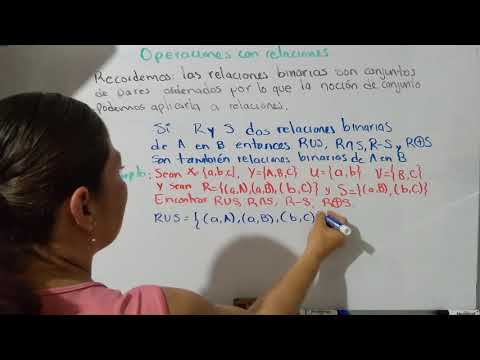 Operaciones con relaciones
Recordemos: las relaciones binarias son conjuntos
de pares ordenados por lo que la noción de conjunto
podemos aplicarla a relaciones.
Si R y S dos relaciones binarias
de A en B entonces RUS, R∩S, R-S, y R⊕S
son también relaciones binarias de A en B
Sean X={a,b,c}, Y={A,B,C} U={a,b} V={B,C}
y sean R={(a,A),(a,B),(b,C)} y S={(a,B),(b,C)}
Encontrar RUS, R∩S, R-S, R⊕S.
RUS={(a,A),(a,B),(b,C)